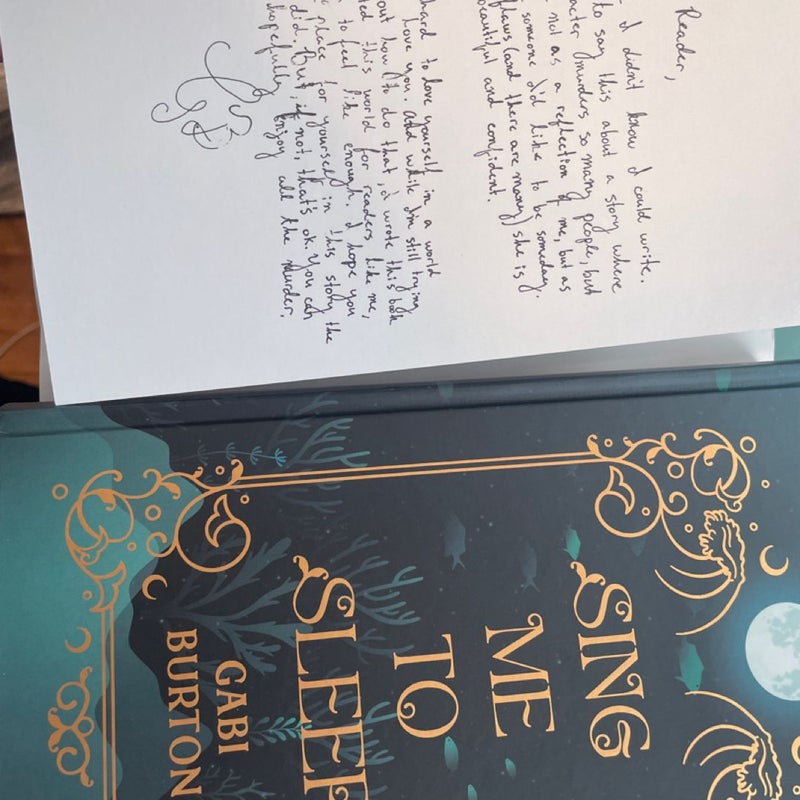 Reader,
I didn't know I could write.
to say this about a story where
acter murders so many people, but
not as a reflection of me, but as
someone I'd like to be someday.
flaws (and there are many) she is
beautiful and confident.
hard to love yourself in a world
love you. And while I'm still trying
out how to do that, I wrote this book
ted this world for readers like me,
to feel like enough. I hope you
place for yourself in this story the
did. But, if not, that's ok. You can
hopefully enjoy all the murder.
SING
ME
TO
SLEEP
GABI
BURTON